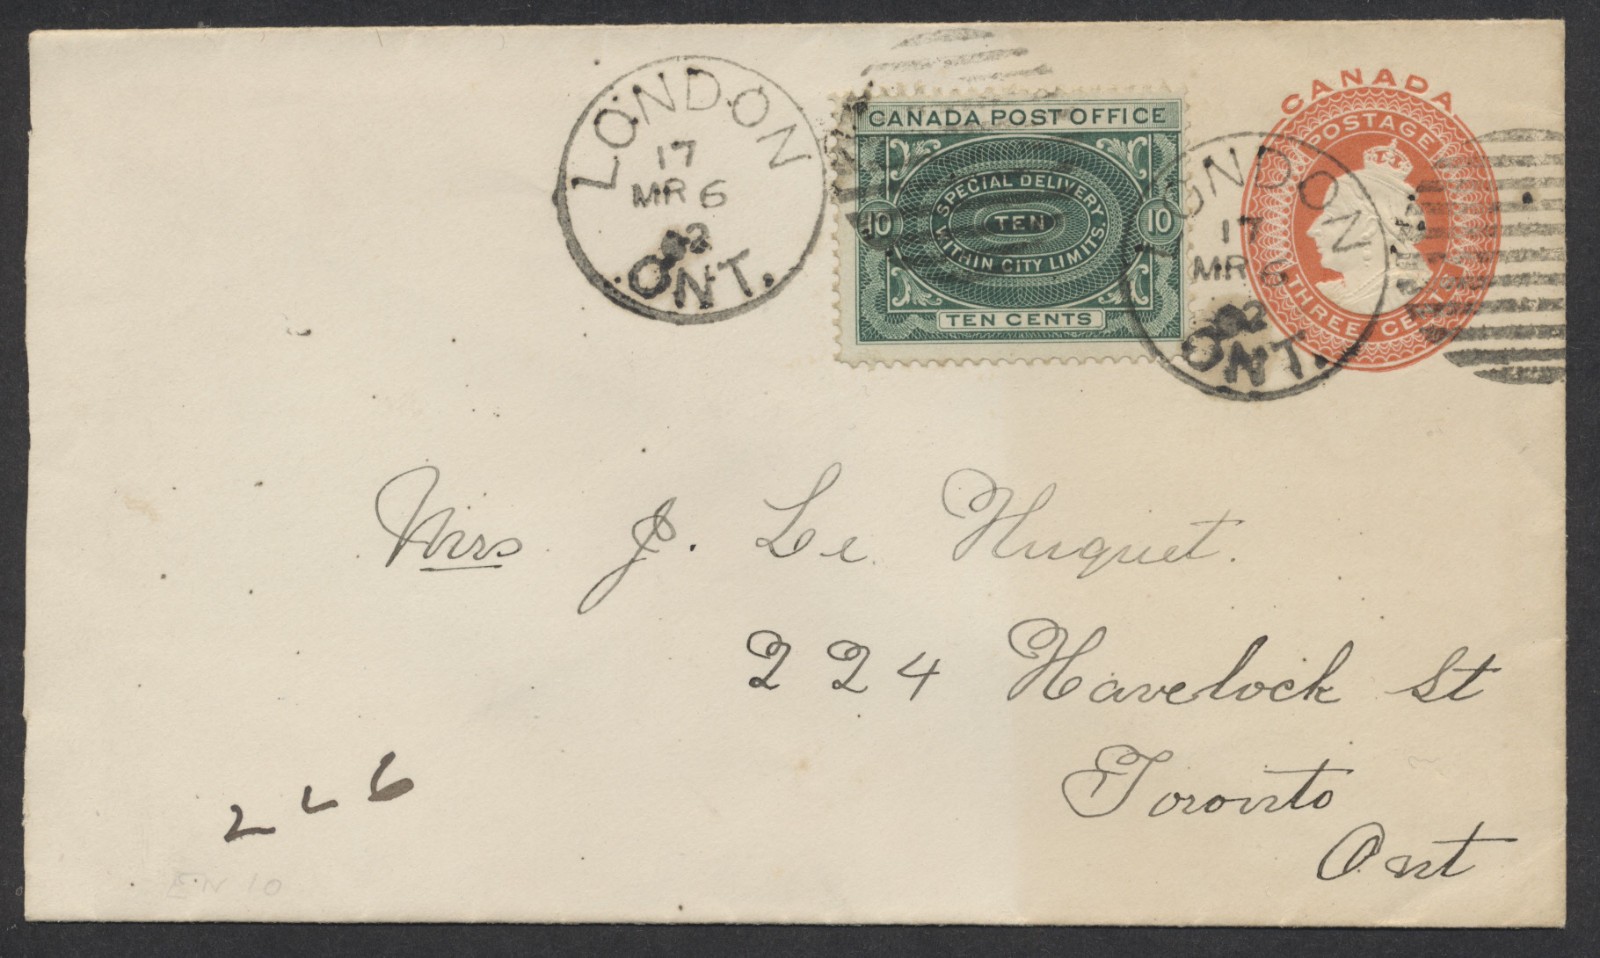 LONDON
17
MR 6
92
ONT.
CANADA POST OFFICE
SPECIAL DELIVERY
10 TEN 10
WITHIN CITY LIMITS.
TEN CENTS
CANADA
POSTAGE
THREE CE
LONDON
17
MR 6
92
ONT.
Mrs J. Le Huquet.
224 Havelock St
Toronto
Ont
226
EN 10